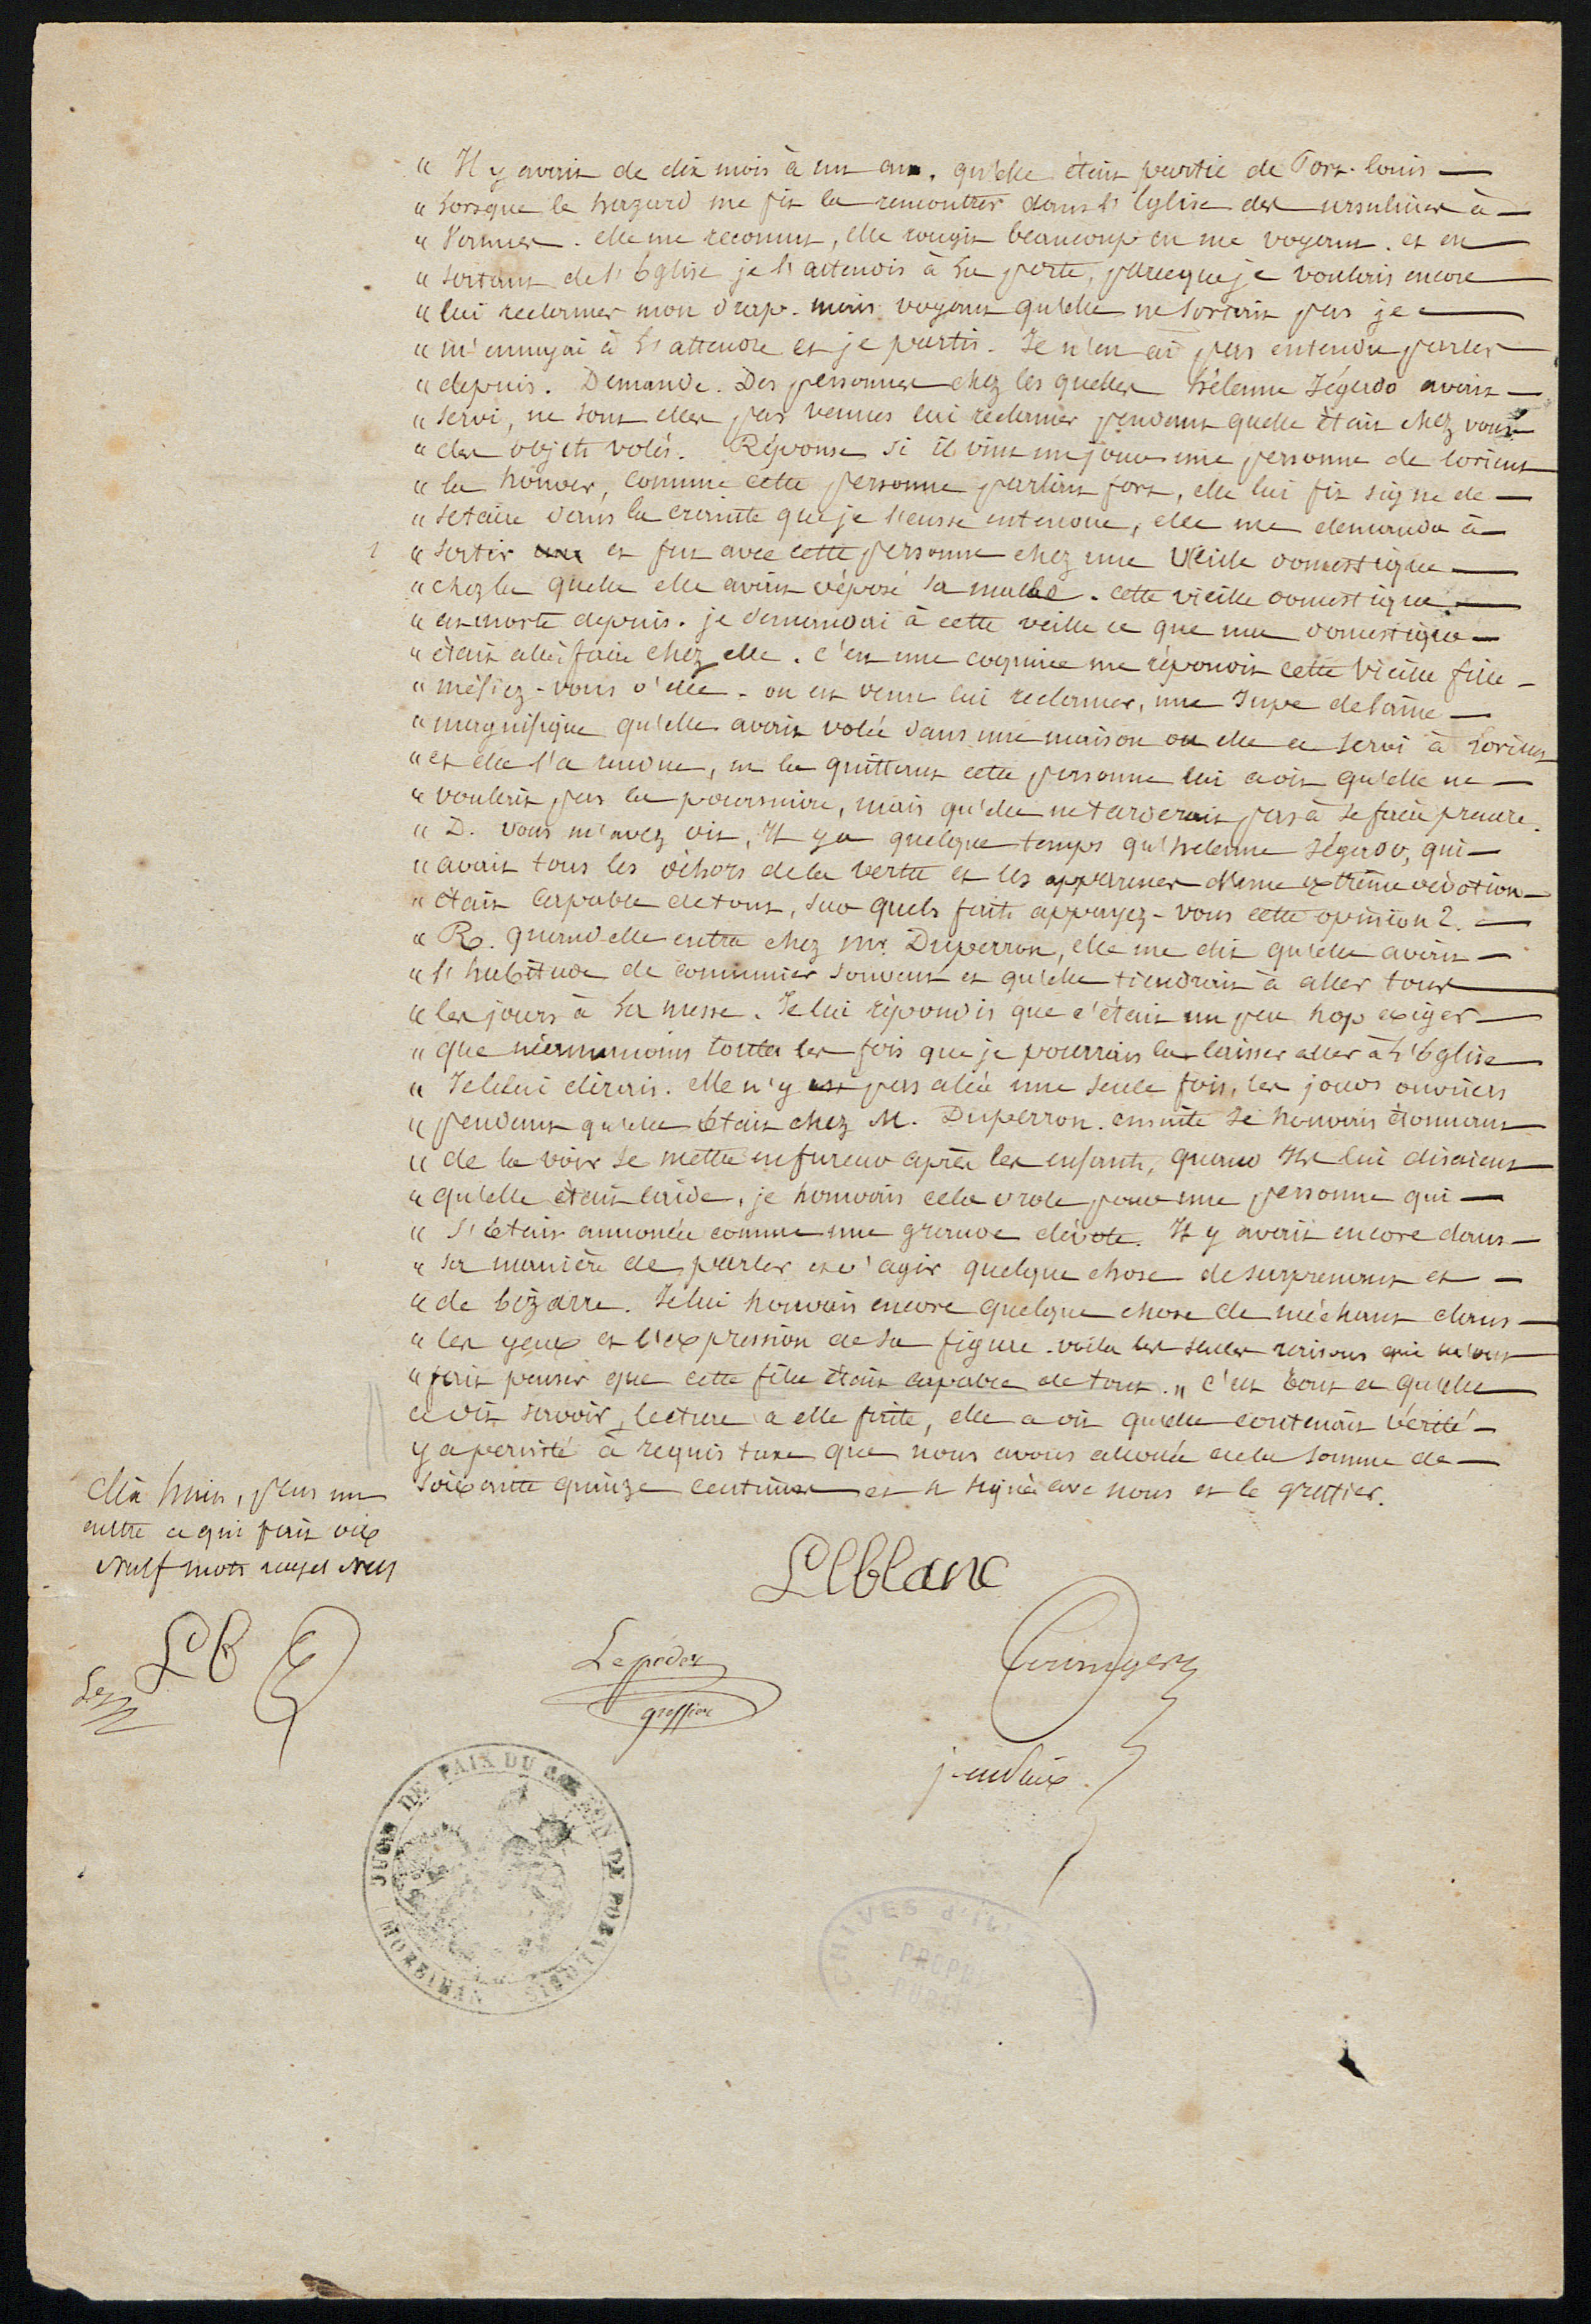 " Il y avait de dix mois à un an, qu'elle était partie de Port-louis —
" Lorsque le hazard me fit la rencontrer dans l'Eglise des ursulines à —
" Vannes. elle me reconnut, elle rougit beaucoup en me voyant. et en —
" sortant de l'Eglise je l'attendis à la porte, parceque je voulais encore
" lui reclamer mon drap. mais voyant qu'elle ne sortait pas je —
" m'ennuyai à l'attendre et je partis. Je n'en ai pas entendu parler
" depuis. Demande. Des personnes chez les quelles hélenne Jégado avait —
" servi, ne sont elles pas venues lui reclamer pendant quelle était chez vous
" des objets volés. Réponse Si il vint un jour une personne de lorient
" la trouver, Comme cette personne parlait fort, elle lui fit signe de —
" se taire dans la crainte que je l'eusse entendue, elle me demanda à —
" sortir et fut avec cette personne chez une vieille domestique —
" chez la quelle elle avait déposé sa malle. cette vieille domestique —
" est morte depuis. je demandai à cette veille ce que ma domestique —
" était allée faire chez elle. c'est une coquine me répondit cette vieille fille —
" méfiez-vous d'elle. on est venu lui reclamer, une Jupe de laine —
" magnifique qu'elle avait volée dans une maison ou elle a servi à Lorient
" et elle l'a rendue, en la quittant cette personne lui a dit qu'elle ne —
" voulait pas la poursuivre, mais qu'elle ne tarderait pas à se faire prendre.
" D. vous m'avez dit, Il y a quelque temps qu'helenne Jégado, qui —
" avait tous les déhors de la vertu et les apparences d'une extrême dévotion —
" était capable de tout, sur quels faits appuyez-vous cette opinion ? —
" R. quand elle entra chez mr. Duperron, elle me dit qu'elle avait —
" l'habitude de communier souvent et qu'elle tiendrait à aller tous
" les jours à la messe. Je lui répondis que c'était un peu trop exiger —
" que néanmoins toutes les fois que je pourrais la laisser aller à l'Eglise
" Je le lui dirais. elle n'y est pas allée une seule fois, les jours ouvriers
" pendant qu'elle était chez M. Duperron. ensuite Je trouvais étonnant
" de la voir se mettre en fureur après les enfants, quand Ils lui disaient
" qu'elle était laide, je trouvais cela drole pour une personne qui —
" s'était annoncée comme une grande dévote. Il y avait encore dans —
" sa manière de parler et d'agir quelque chose de surprenant et —
" de bizarre. Je lui trouvais encore quelque chose de méchant dans —
" les yeux et l'expression de sa figure. voila les seules raisons qui m'ont
" fait penser que cette fille était capable de tout. " C'est tout ce qu'elle
a dit savoir, lecture a elle faite, elle a dit qu'elle contenait vérité —
y a persisté à requis taxe que nous avons allouée de la somme de —
soixante quinze centimes et a signé avec nous et le greffier.
plus un
autre ce qui fait dix
neuf mots rayés nuls
LB
Leblanc
Lepedoz
greffier
j. de paix
JUGE DE PAIX DU CANTON DE PORT LOUIS
MORBIHAN